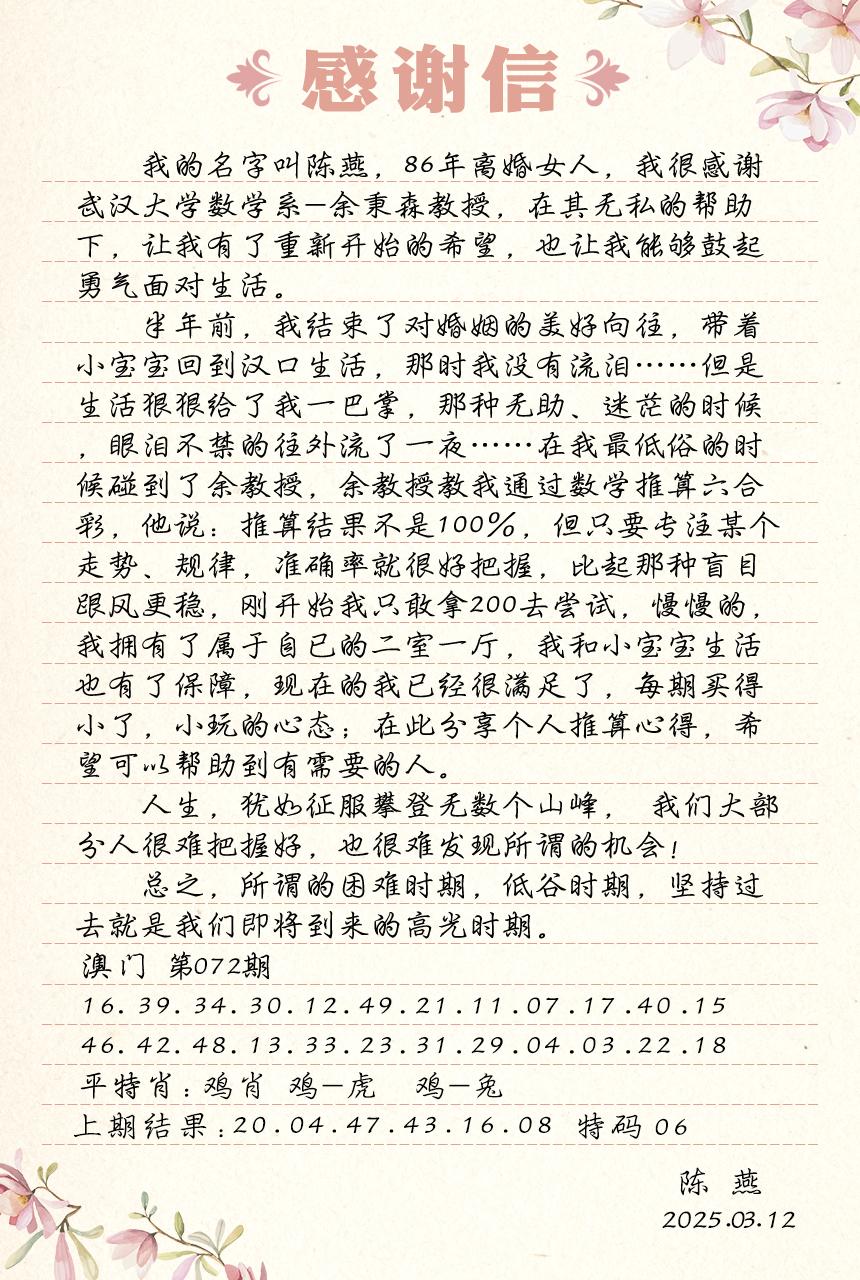 感谢信
我的名字叫陈燕，86年离婚女人，我很感谢
武汉大学数学系—余秉森教授，在其无私的帮助
下，让我有了重新开始的希望，也让我能够鼓起
勇气面对生活。
半年前，我结束了对婚姻的美好向往，带着
小宝宝回到汉口生活，那时我没有流泪……但是
生活狠狠给了我一巴掌，那种无助、迷茫的时候
，眼泪不禁的往外流了一夜……在我最低俗的时
候碰到了余教授，余教授教我通过数学推算六合
彩，他说：推算结果不是100%，但只要专注某个
走势、规律，准确率就很好把握，比起那种盲目
跟风更稳，刚开始我只敢拿200去尝试，慢慢的，
我拥有了属于自已的二室一厅，我和小宝宝生活
也有了保障，现在的我已经很满足了，每期买得
小了，小玩的心态；在此分享个人推算心得，希
望可以帮助到有需要的人。
人生，犹如征服攀登无数个山峰， 我们大部
分人很难把握好，也很难发现所谓的机会！
总之，所谓的困难时期，低谷时期，坚持过
去就是我们即将到来的高光时期。
澳门 第072期
16.39.34.30.12.49.21.11.07.17.40.15
46.42.48.13.33.23.31.29.04.03.22.18
平特肖：鸡肖 鸡—虎 鸡—兔
上期结果：20.04.47.43.16.08 特码 06
陈 燕
2025.03.12